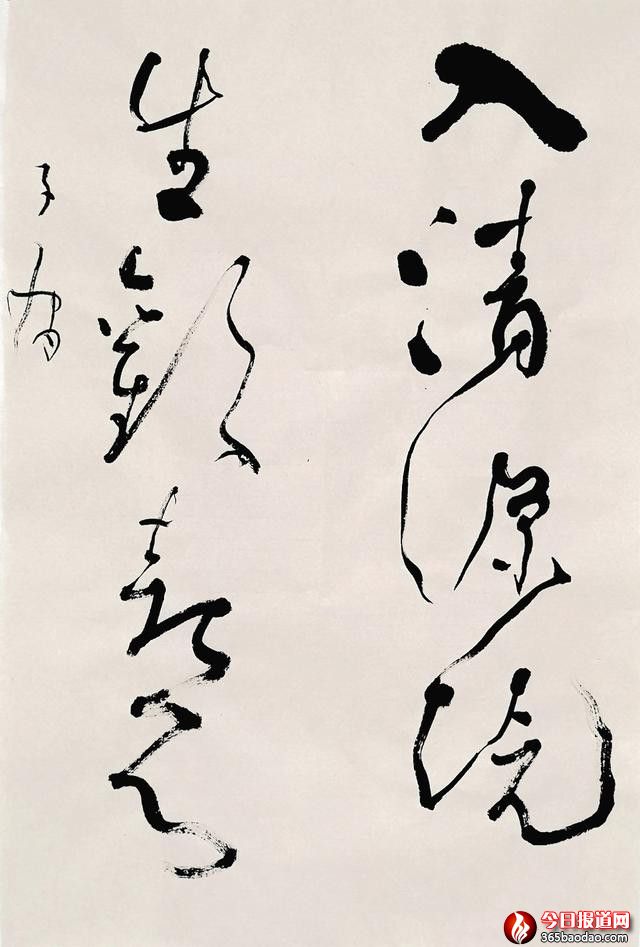 入清涼境
生歡喜心
今日报道网
365baodao.com